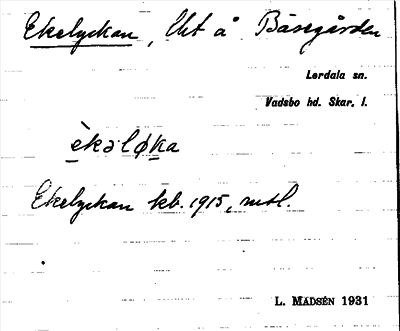 Ekelyckan, lht å Båsegården
Lerdala sn.
Vadsbo hd. Skar. l.
èkəløka
Ekelyckan kb. 1915, mtl.
L. MADSÉN 1931